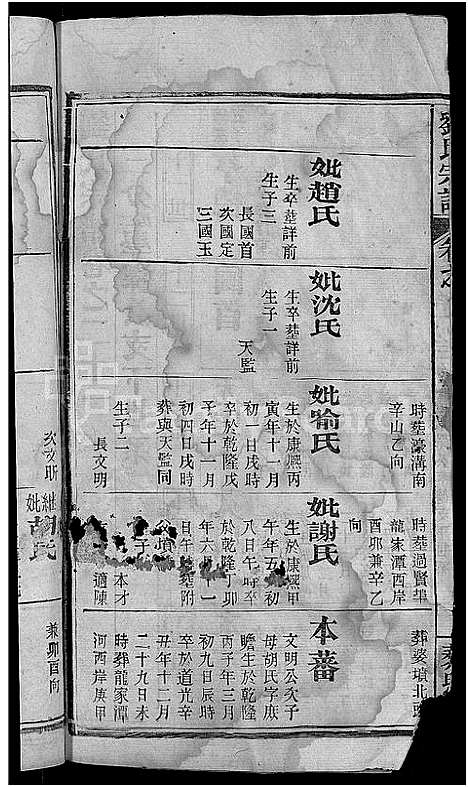 劉氏宗譜
妣趙氏
生卒塟詳前
生子三
長國首
次國定
三國玉
妣沈氏
生卒塟詳前
生子一
天監
時塟濠溝南
辛山乙向
妣喻氏
生於康熙丙
寅年十一月
初一日戌時
卒於乾隆戊
子年十一月
初四日戌時
葬與天監同
生子二
長文明
次文昕
時塟過賢埠
龍家潭西岸
酉卯兼辛乙
向
妣謝氏
生於康熙甲
午年五月初
八日午時卒
於乾隆丁卯
年六月
日午時塟附
父墳
本才
適陳
繼
妣胡氏
葬婆墳北
本蕃
文明公次子
母胡氏字庶
瞻生於乾隆
丙子年三月
初九日辰時
卒於道光辛
丑年十二月
二十九日未
時葬龍家潭
河西岸庚甲
兼卯酉向